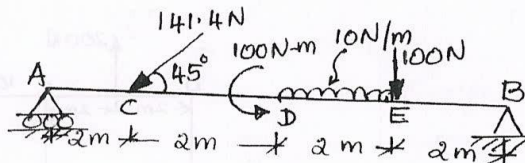 141.4N
45°
100N-m
10N/m
100N
A
C
D
E
B
2m
2m
2m
2m